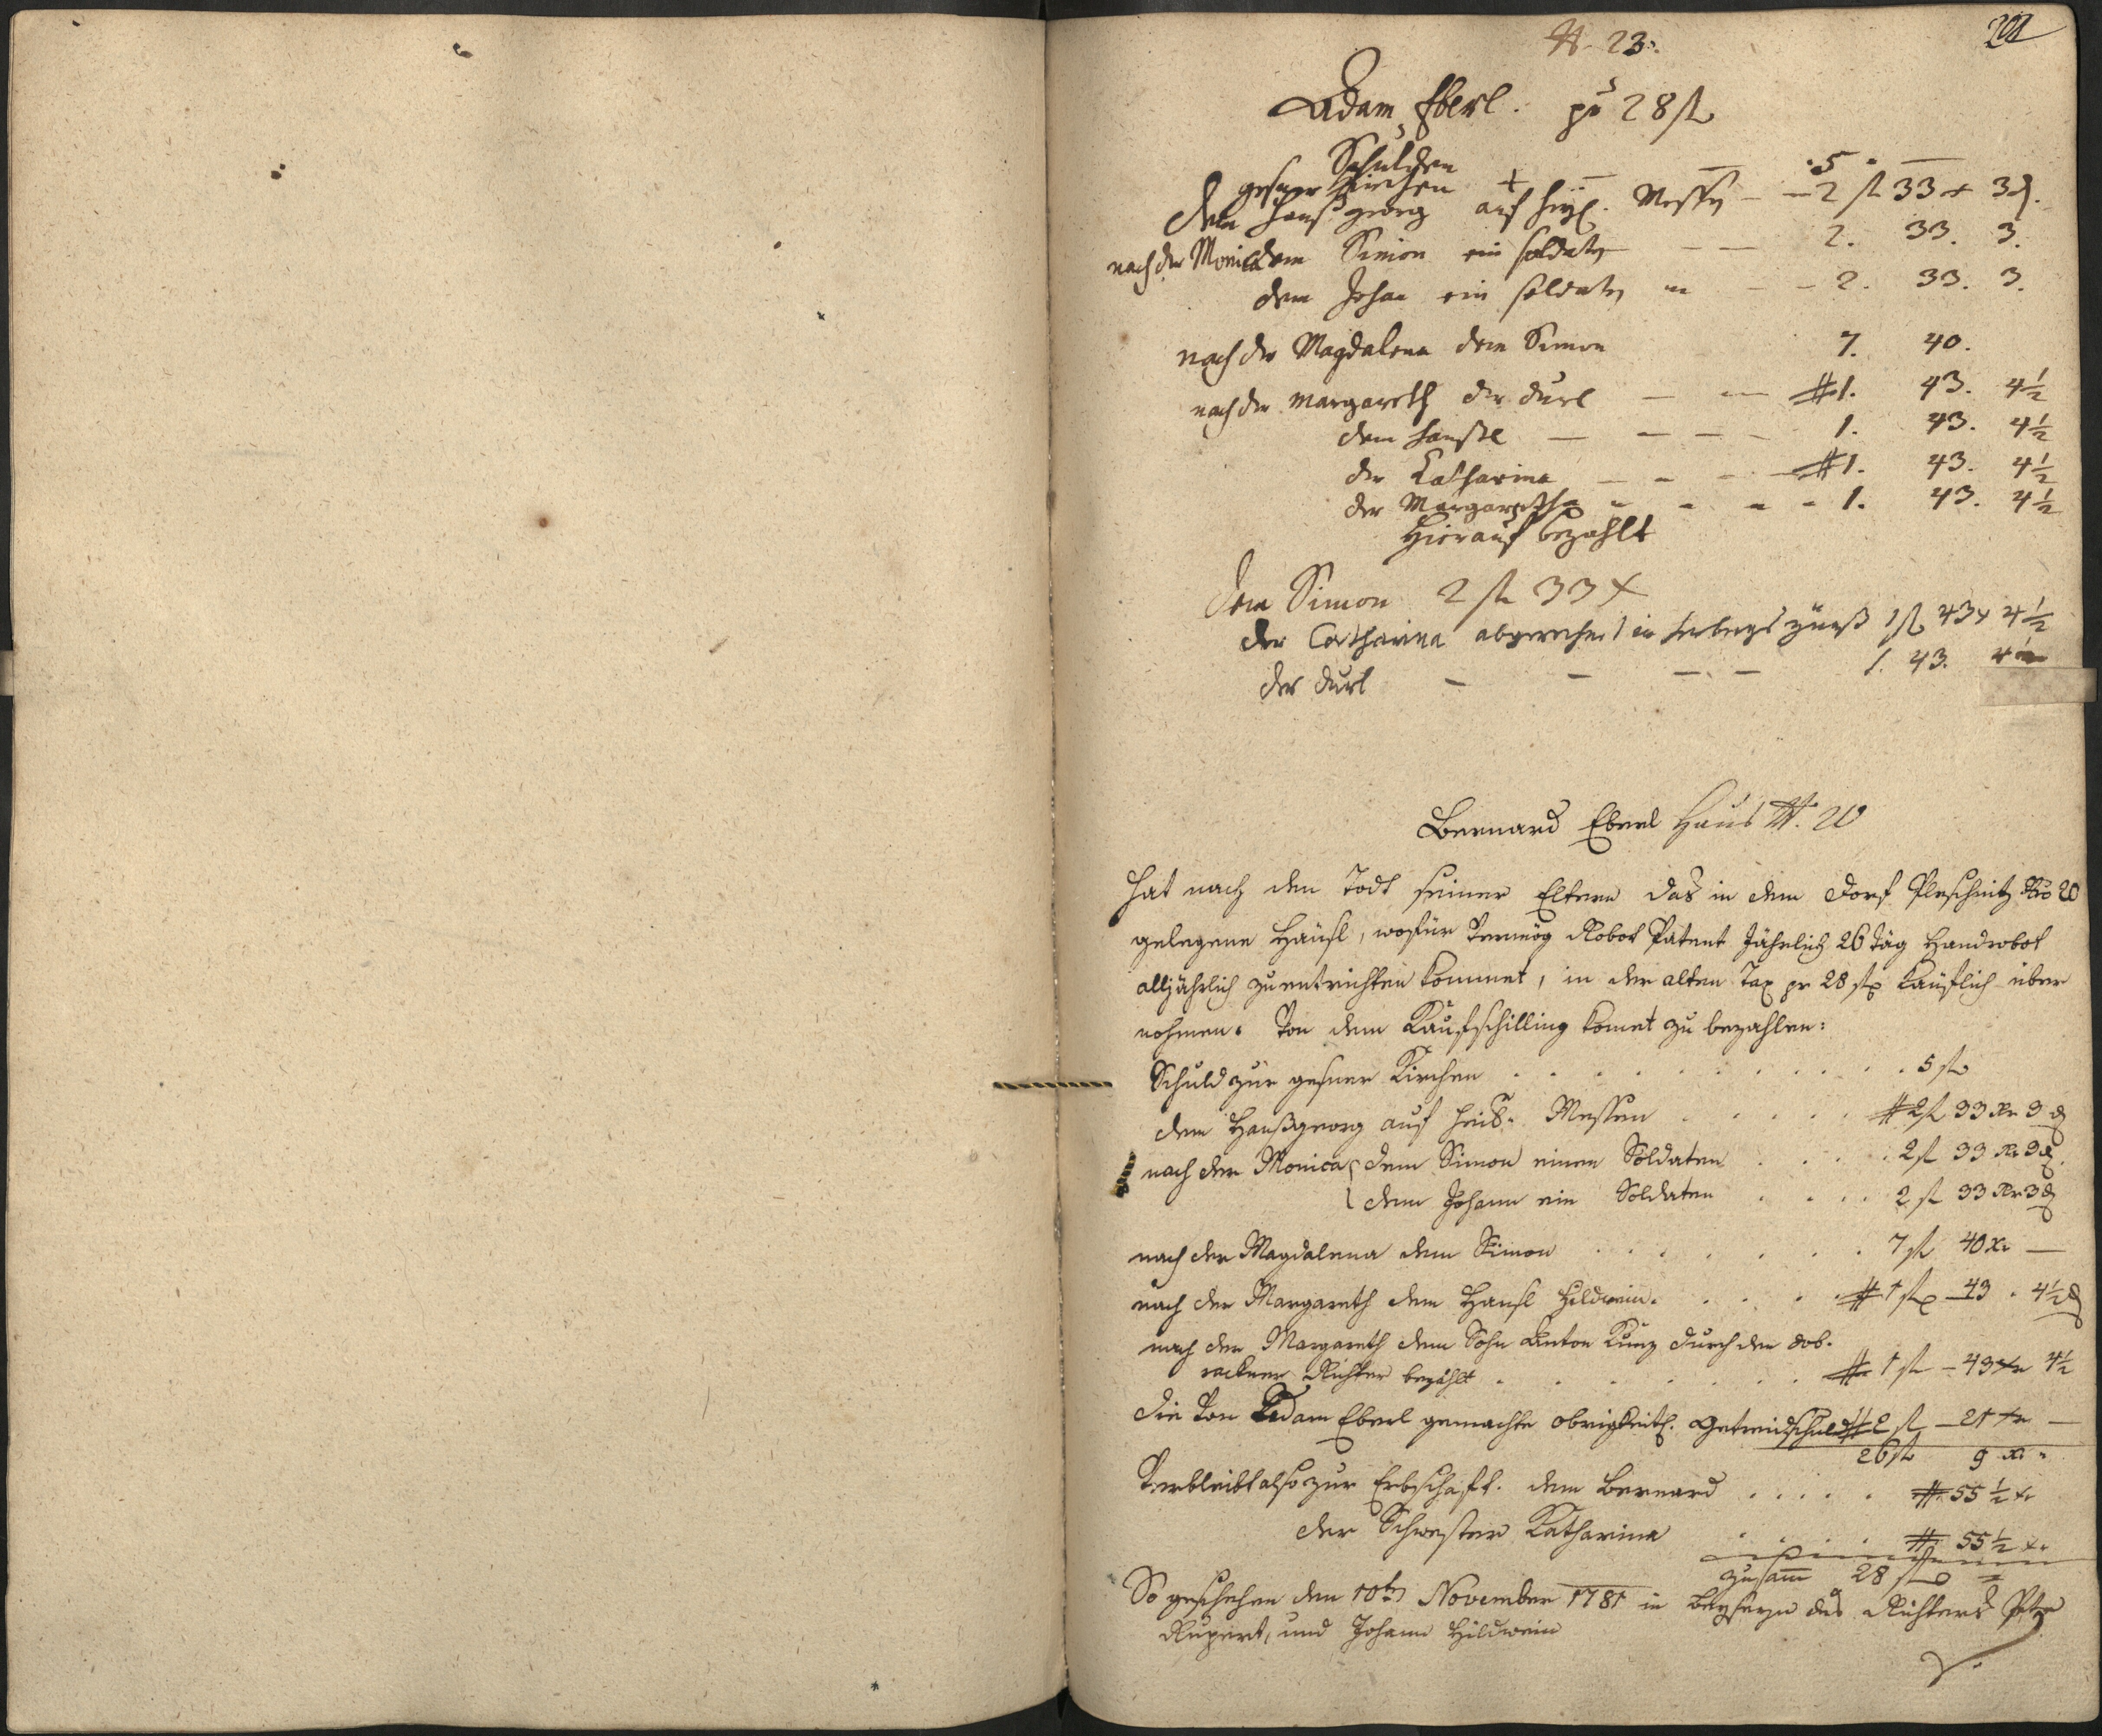 201
N. 23.
Adam Eberl. pr 28 fl
Schulden
gosner Kirchen — 5 —
dem Hanßgeorg auf heyl. Messen — 2 fl 33 x 3 d.
nach der Monica dem Simon ein Soldaten — — 2. 33. 3.
dem Johan ein Soldaten — — 2. 33. 3.
nach der Magdalena dem Simon 7. 40.
nach der Margareth der Durl — — # 1. 43. 4½
dem Hansl — — — — 1. 43. 4½
der Katharina — — — # 1. 43. 4½
der Margaretha — — — 1. 43. 4½
Hierauf bezahlt
dem Simon 2 fl 33 x
der Catharina abgerechnet in Herbergs zünß 1 fl 43 x 4½
der Durl — — — — 1. 43. 4½
Bernard Eberl Haus N. 20
hat nach dem Todt seiner Eltern das in dem Dorf Pleschnitz Nro 20
gelegene Häusl, wofür vermög Robot Patent Jährlich 26 Täg Handrobot
alljährlich zu entrichten kommet, in der alten Tax pr 28 fl Käuflich über
nohmen. Von dem Kaufschilling komet zu bezahlen:
Schuld zur gosner Kirchen . . . . . 5 fl
dem Hanßgeorg auf heil. Messen . . . # 2 fl 33 Xr 3 d
nach der Monica dem Simon einen Soldaten . . . 2 fl 33 Xr 3 d.
dem Johann ein Soldaten . . . 2 fl 33 Xr 3 d
nach der Magdalena dem Simon . . . . . 7 fl 40 Xr —
nach der Margareth dem Hansl Hildwein . . . # 1 fl 43 . 4½ d
nach der Margareth dem Sohn Anton Kunz durch den dob-
racкner Richter bezahlt . . . . . # 1 fl — 43 Xr 4½
die von Adam Eberl gemachte obrigkeitl. Getreidschuld # 2 fl — 21 Xr —
26 fl 9 Xr
Verbleibt also zur Erbschaft. dem Bernard . . . . . # 55½ Xr
der Schwester Katharina . . . . # 55½ Xr
zusamm 28 fl
So geschehen den 10ten November 1781 in Beyseyn des Richters
Rupert, und Johann Hildwein